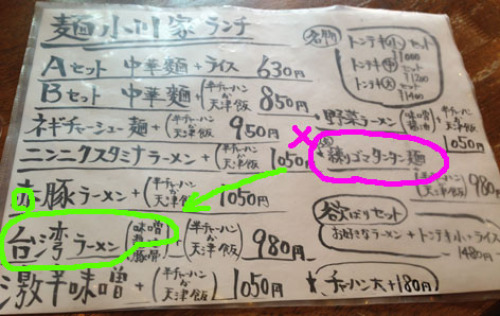 麺小川家 ランチ
Aセット 中華麺+ライス 630円
Bセット 中華麺+(半チャーハンか天津飯 850円
ネギチャーシュー麺+(半チャーハンか天津飯) 950円
ニンニクスタミナラーメン+(半チャーハンか天津飯) 1050円
赤豚ラーメン+(半チャーハンか天津飯) 1050円
台湾ラーメン(味噌 豚骨)+(半チャーハンか天津飯) 980円
激辛味噌+(半チャーハンか天津飯) 1050円
名物
トンテキ小セット
1000
トンテキ中セット
1200
トンテキ大セット
1400
野菜ラーメン(味噌 醤油)+(半チャーハンか天津飯
1050円
練りゴマタンタン麺
+(半チャーハンか天津飯 980円
欲ばりセット
お好きなラーメン+トンテキ小+ライス
1480円
★チャーハン大+180円